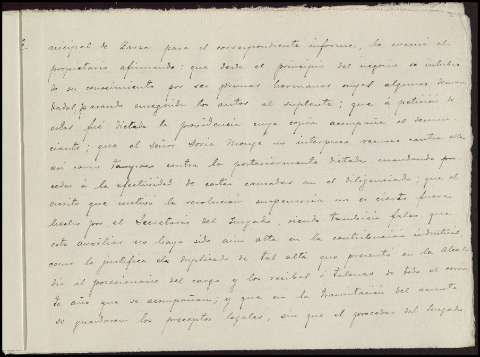 nicipal de para el correspondiente informe, lo evacuó el
propietario afirmando; que desde el principio del negocio se inhibió
de su conocimiento por ser primas hermanas suyas algunas deman
dadas, pasando enseguida los autos al suplente; que á petición de
ellas fué dictada la providencia cuya copia acompaña el denun
ciante; que el Señor Soria no interpuso recurso contra ella
así como tampoco contra la posteriormente dictada mandando pro
ceder á la efectividad de costas causadas en el diligenciado; que el
escrito que motivó la resolución no es cierto fuera
hecho por el Secretario del Juzgado siendo también falso que
este auxiliar no haya sido dado alta en la contribución industrial
como lo justifica el duplicado de tal alta que presentó en la Alcal
día al posesionarse del cargo y los recibos ó talones de todo el corrien
te año que se acompañan; y que en la tramitación del asunto
se guardaron los preceptos legales, sin que el proceder del Juzgado